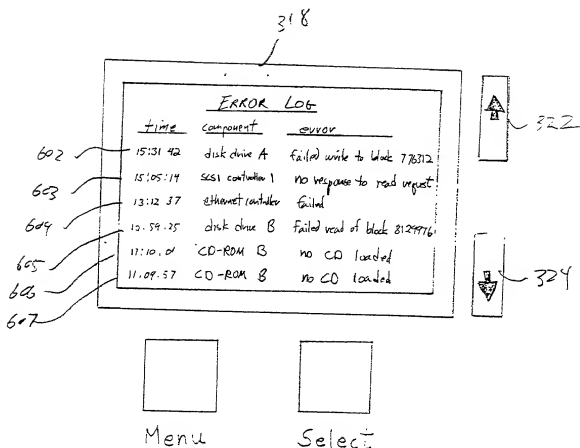 318
ERROR LOG
time component error
602 15:31 42 disk drive A failed write to block 776312
603 15:05:14 SCSI controller 1 no response to read request
604 13:12 37 ethernet controller failed
605 12.59.25 disk drive B failed read of block 8129976
606 11:10.01 CD-ROM B no CD loaded
607 11.09.57 CD-ROM B no CD loaded
322
324
Menu Select